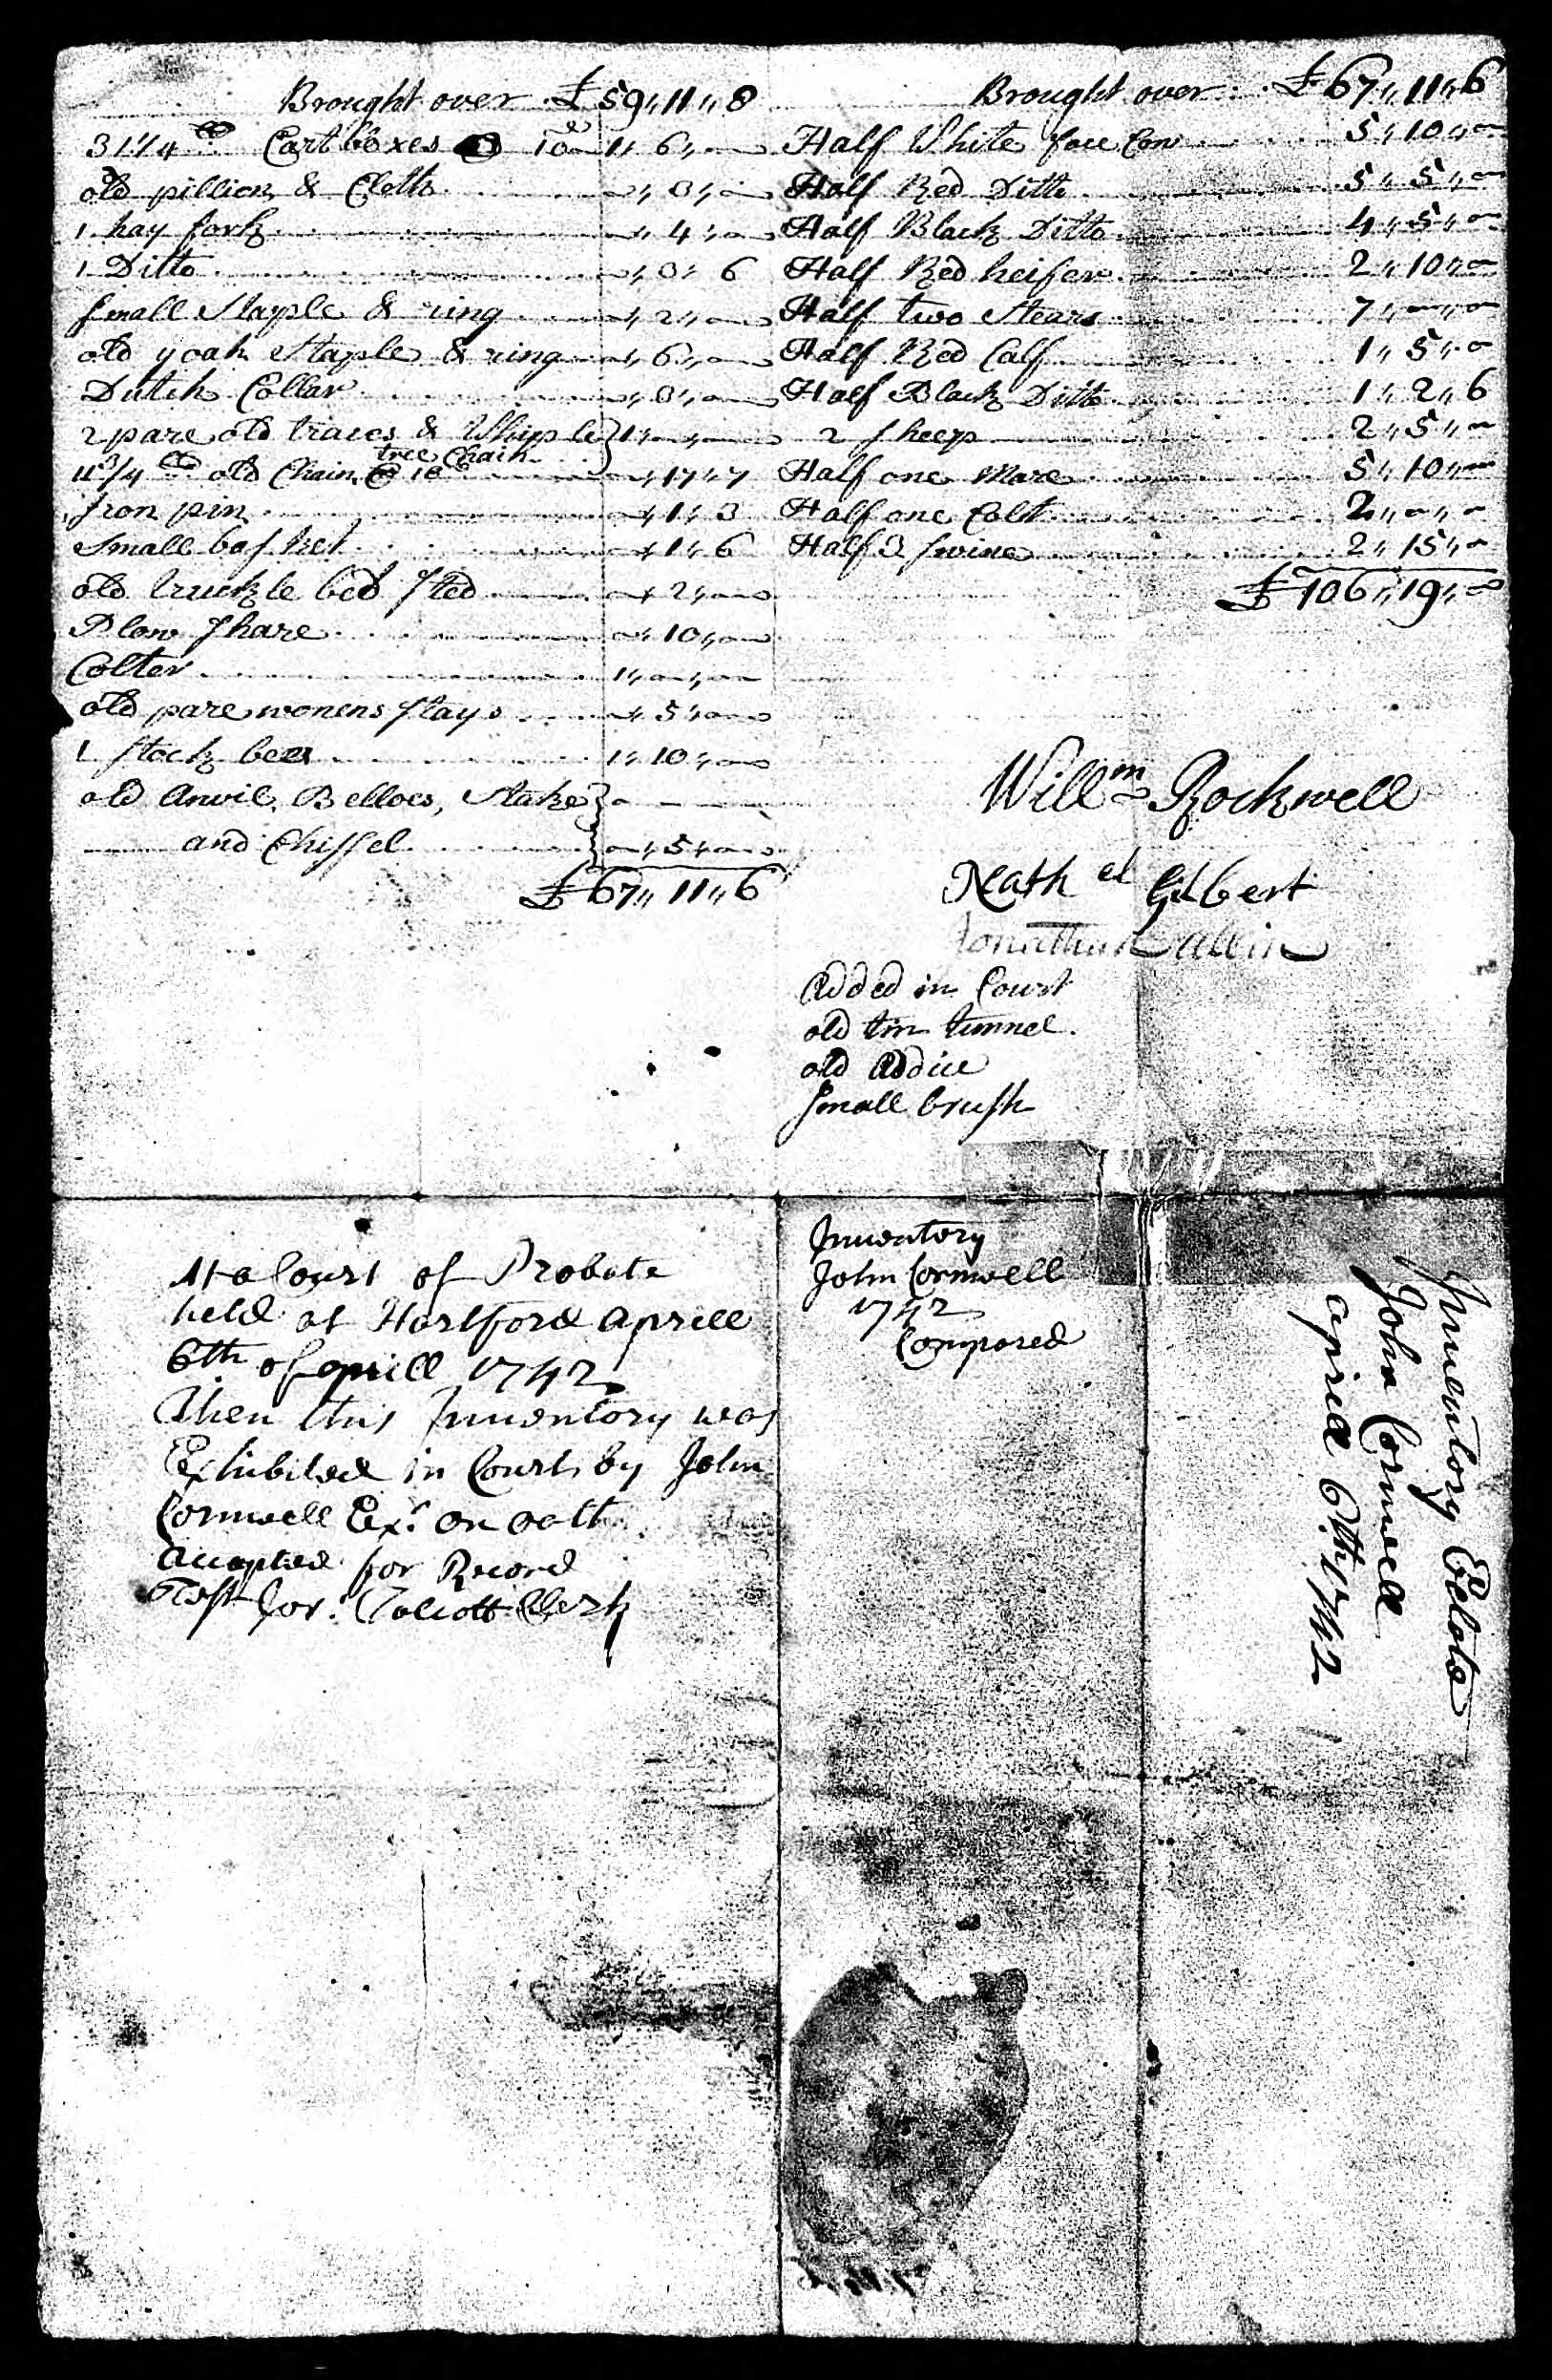 Brought over £59,,11,,8
31 1/4 lb Cart boxes @ 10d 1,, 6,, -
old pillion & Cloth -,, 3,, -
1 hay fork -,, 4,, -
1 Ditto -,, 3,, 6
Small Staple & ring -,, 2,, -
old yoak Staple & ring -,, 6,, -
Dutch Collar -,, 3,, -
2 pare old traces & Whiple 1,, -,, -
tree Chain
11 3/4 lb old Chain @ 18d -,, 17,, 7
Iron pin -,, 1,, 3
Small basket -,, 1,, 6
old truckle bed sted -,, 2,, -
Plow share -,, 10,, -
Colter 1,, -,, -
old pare womens stays -,, 5,, -
1 stock bees 1,, 10,, -
old Anvil, Belloes, Stake
and Chissel -,, 5,, -
£67,, 11,, 6
Brought over £67,,11,,6
Half White face Cow 5,, 10,, -
Half Red Ditto 5,, 5,, -
Half Black Ditto 4,, 5,, -
Half Red heifer 2,, 10,, -
Half two Stears 7,, -,, -
Half Red Calf 1,, 5,, -
Half Black Ditto 1,, 2,, 6
2 sheep 2,, 5,, -
Half one Mare 5,, 10,, -
Half one Colt 2,, -,, -
Half 3 swine 2,, 15,, -
£106,,19,, -
Willm Rockwell
Nathel Gilbert
Jonathan Allin
Added in Court
old tin tunnel.
old Addice
small brush
At a Court of Probate
held at Hartford Aprill
6th of Aprill 1742
Then this Inventory was
Exhibited in Court by John
Cornwell Exr. on oath
Accepted for Record
Test Jos. Talcott Clerk
Inventory
John Cornwell
1742
Compared
Inventory Estate
John Cornwell
April 6th 1742